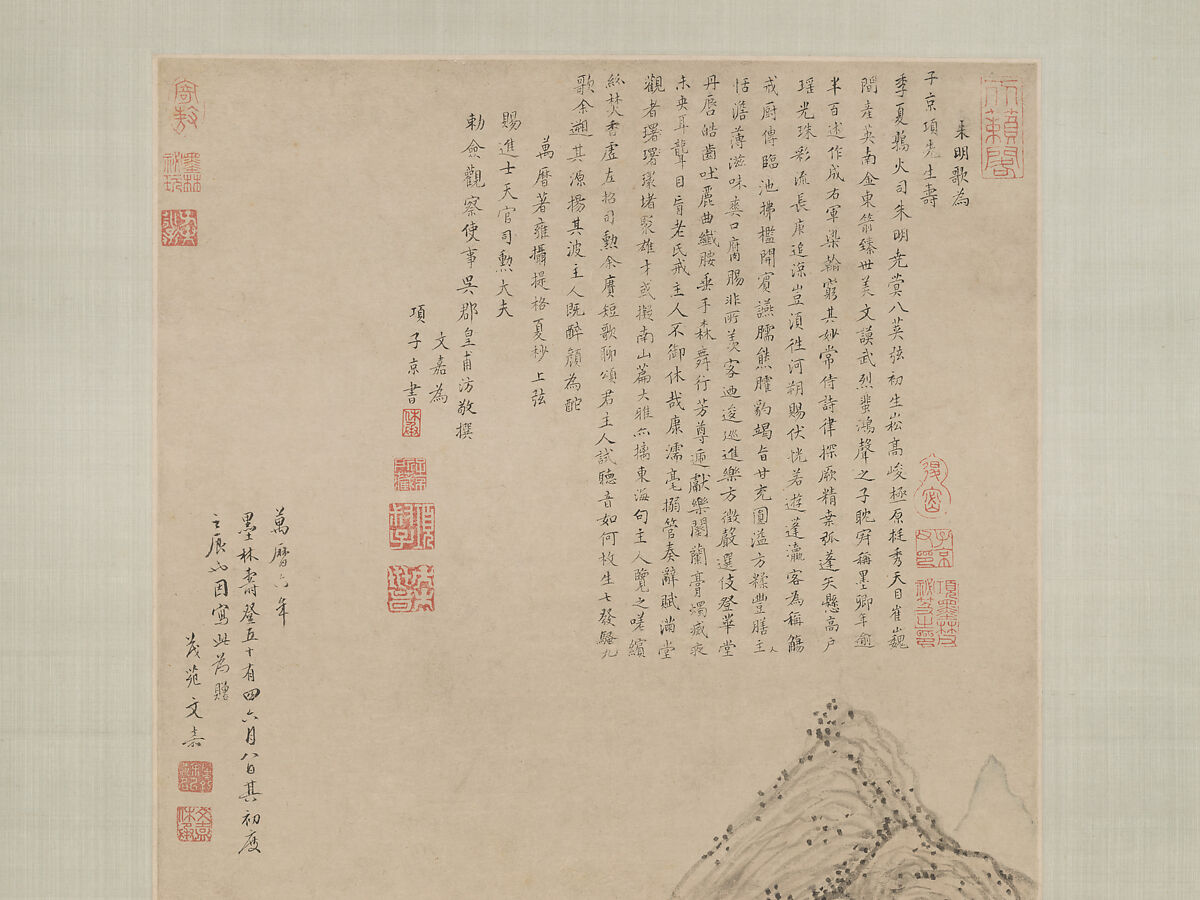 朱明歌為
子京項先生壽
季夏鶉火司朱明堯蓂八英弦初生崧高峻極原挺秀天目崔巍
間產英南金東箭臻世美文謨武烈蜚鴻聲之子耽舜稱墨卿年逾
半百述作成右軍染翰窮其妙常侍詩律探厥精桑弧蓬矢懸高戶
瑤光珠影流長庚追涼豈須往河朔賜伏恍若遊蓬瀛客為稱觴
戒廚傳臨池拂檻開賓讌臑熊臛豹竭旨甘充圓溢方粖豐膳主人
恬澹薄滋味爽口腐腸非所羨客迺逡巡進樂方徵聲選伎登華堂
丹唇皓齒吐麗曲纖腰垂手森舞行芳尊遞獻樂闋蘭膏燭滅夜
未央耳聾目盲老氏戒主人不御休哉康濡毫搦管奏辭賦滿堂
觀者曙曙環堵聚雄才或擬南山篇大雅亦摛東海句主人覽之嗟繽
紛焚香虛左招司勳余賡短歌聊頌君主人試聽音如何枚生七發騷九
歌余遡其源揚其波主人既醉顏為酡
萬曆著雍攝提格夏杪上弦
賜進士天官司勳大夫
勅僉觀察使事吳郡皇甫汸敬撰
文嘉為
項子京書
萬曆六年
墨林壽登五十有四六月八日其初度
之辰也因寫此為贈
茂苑文嘉